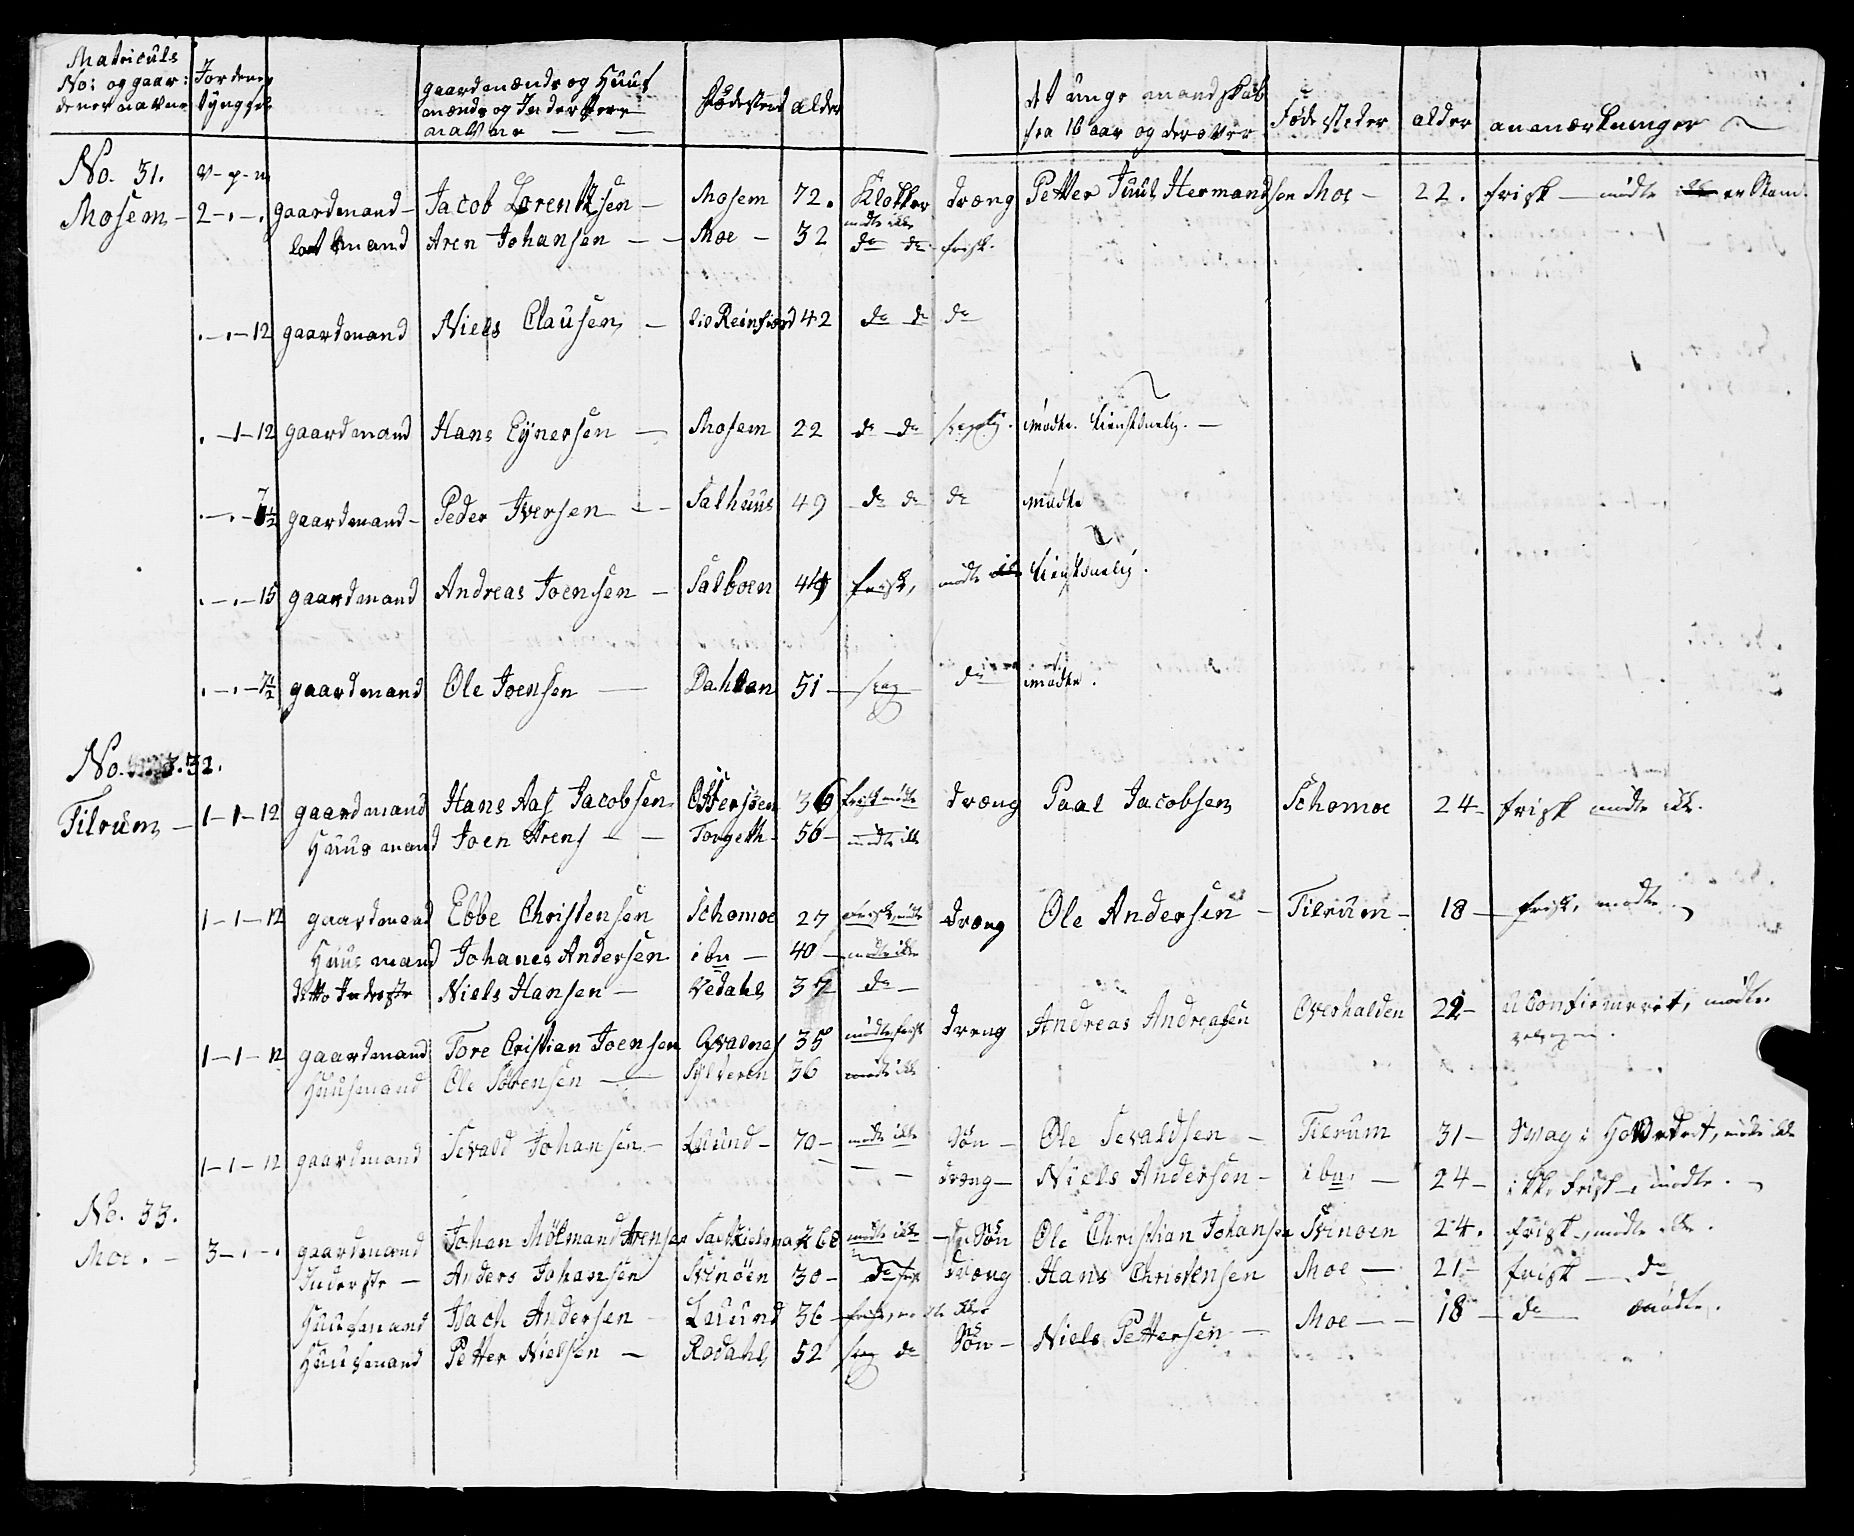 Matriculs No: og gaardenes navne Jordenes tyngsel gaardmænds og Huusmænds og Inderster navne Fødested alder det unge mandskab fra 16 aar og derover Føde steder alder anmærkninger
No. 31. v - p - m
Mosem - 2 - . - . gaardmand - Jacob Lorentzsen - Mosem 72. Klokker dræng Petter Juul Hermandsen Moe - 22. frisk - mødte er
mødte ikke
mand Aren Johansen - - Moe - 32 do do frisk.
. - . - 12 gaardmand Niels Clausen - 42 do do do
. - 1 - 12 gaardmand Hans Eÿnersen - Mosem 22 do do mødte. tienstduelig. -
. - . - 7½ gaardmand - Peder Iversen - - Salhuus 49 do do do mødte
. - . - 15 gaardmand Andreas Joensen - Salboen 44 frisk, mødte tienstduelig.
. - . - 7½ gaardmand Ole Joensen - Dahlen 51 - svag do mødte.
No. 32.
Tilrum - 1 - 1 - 12 gaardmand Hans Aas Jacobsen 36 frisk mødte dræng Paal Jacobsen Schomoe 24 - frisk mødte ikke.
Huusmand Joen Arens - - Torgeth - 56 - mødte ikke
1 - 1 - 12 gaardmand Ebbe Christensen Schomoe 27 frisk, mødte dræng Ole Andersen - Tilrum - 18 - frisk, mødte.
Huusmand Johanes Andersen ibn - 40 - mødte ikke
ditto Inderste Niels Hansen - Vedahl 37 do -
dreng Andreas Andreasen Overhalden 22 - uConfirmerit, mødte.
1 - 1 - 12 gaardmand Tore Cristian Joensen Qvalnes 35 mødte, frisk
Huusmand Ole Sørensen - Sÿlderen 36 mødte ikke
1 - 1 - 12 gaardmand Sevald Johansen - Lunnd - 70 - mødte ikke Søn - Ole Sevaldsen - Tilrum 31 - Svag i Hovedet, mødte ikke
dræng - Niels Andersen - ibn. - 24 - ikke frisk - mødte.
No. 33.
Moe. - 3 - . - . gaardmand Johan Mølmand Arensen 68 mødte ikke Søn Ole Christian Johansen Svinøen 24. frisk -, mødte ikke.
Inderste - Anders Johansen Svinøen 30 - do frisk dræng Hans Christensen Moe - 21 - frisk - do
Huusmand Isach Andersen - Lunnd 36 - frisk, mødte ikke
Huusmand Petter Nielsen - Rodahl 52 svag do Søn - Niels Pettersen - Moe - - 18 - do mødte.